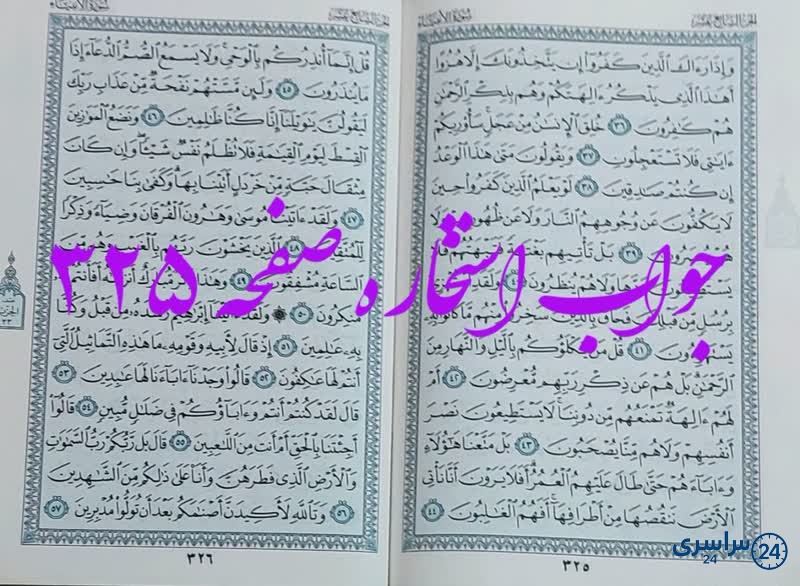 الجزء السابع عشر
سورة الأنبياء
وَإِذَا رَءَاكَ ٱلَّذِينَ كَفَرُوٓا۟ إِن يَتَّخِذُونَكَ إِلَّا هُزُوًا
أَهَٰذَا ٱلَّذِى يَذْكُرُ ءَالِهَتَكُمْ وَهُم بِذِكْرِ ٱلرَّحْمَٰنِ
هُمْ كَٰفِرُونَ ٣٦ خُلِقَ ٱلْإِنسَٰنُ مِنْ عَجَلٍ سَأُو۟رِيكُمْ
ءَايَٰتِى فَلَا تَسْتَعْجِلُونِ ٣٧ وَيَقُولُونَ مَتَىٰ هَٰذَا ٱلْوَعْدُ
إِن كُنتُمْ صَٰدِقِينَ ٣٨ لَوْ يَعْلَمُ ٱلَّذِينَ كَفَرُوا۟ حِينَ
لَا يَكُفُّونَ عَن وُجُوهِهِمُ ٱلنَّارَ وَلَا عَن ظُهُورِهِمْ وَلَا
هُمْ يُنصَرُونَ ٣٩ بَلْ تَأْتِيهِم بَغْتَةً فَتَبْهَتُهُمْ فَلَا
يَسْتَطِيعُونَ رَدَّهَا وَلَا هُمْ يُنظَرُونَ ٤٠ وَلَقَدِ ٱسْتُهْزِئَ
بِرُسُلٍ مِّن قَبْلِكَ فَحَاقَ بِٱلَّذِينَ سَخِرُوا۟ مِنْهُم مَّا كَانُوا۟ بِهِۦ
يَسْتَهْزِءُونَ ٤١ قُلْ مَن يَكْلَؤُكُم بِٱلَّيْلِ وَٱلنَّهَارِ مِنَ
ٱلرَّحْمَٰنِ بَلْ هُمْ عَن ذِكْرِ رَبِّهِم مُّعْرِضُونَ ٤٢ أَمْ
لَهُمْ ءَالِهَةٌ تَمْنَعُهُم مِّن دُونِنَا لَا يَسْتَطِيعُونَ نَصْرَ
أَنفُسِهِمْ وَلَا هُم مِّنَّا يُصْحَبُونَ ٤٣ بَلْ مَتَّعْنَا هَٰٓؤُلَآءِ
وَءَابَآءَهُمْ حَتَّىٰ طَالَ عَلَيْهِمُ ٱلْعُمُرُ أَفَلَا يَرَوْنَ أَنَّا نَأْتِى
ٱلْأَرْضَ نَنقُصُهَا مِنْ أَطْرَافِهَآ أَفَهُمُ ٱلْغَٰلِبُونَ ٤٤
٣٢٥
الجزء السابع عشر
سورة الأنبياء
قُلْ إِنَّمَآ أُنذِرُكُم بِٱلْوَحْىِ وَلَا يَسْمَعُ ٱلصُّمُّ ٱلدُّعَآءَ إِذَا
مَا يُنذَرُونَ ٤٥ وَلَئِن مَّسَّتْهُمْ نَفْحَةٌ مِّنْ عَذَابِ رَبِّكَ
لَيَقُولُنَّ يَٰوَيْلَنَآ إِنَّا كُنَّا ظَٰلِمِينَ ٤٦ وَنَضَعُ ٱلْمَوَٰزِينَ
ٱلْقِسْطَ لِيَوْمِ ٱلْقِيَٰمَةِ فَلَا تُظْلَمُ نَفْسٌ شَيْـًٔا وَإِن كَانَ
مِثْقَالَ حَبَّةٍ مِّنْ خَرْدَلٍ أَتَيْنَا بِهَا وَكَفَىٰ بِنَا حَٰسِبِينَ
٤٧ وَلَقَدْ ءَاتَيْنَا مُوسَىٰ وَهَٰرُونَ ٱلْفُرْقَانَ وَضِيَآءً وَذِكْرًا
لِّلْمُتَّقِينَ ٤٨ ٱلَّذِينَ يَخْشَوْنَ رَبَّهُم بِٱلْغَيْبِ وَهُم مِّنَ
ٱلسَّاعَةِ مُشْفِقُونَ ٤٩ وَهَٰذَا ذِكْرٌ مُّبَارَكٌ أَنزَلْنَٰهُ أَفَأَنتُمْ لَهُۥ
مُنكِرُونَ ٥٠ وَلَقَدْ ءَاتَيْنَآ إِبْرَٰهِيمَ رُشْدَهُۥ مِن قَبْلُ وَكُنَّا
بِهِۦ عَٰلِمِينَ ٥١ إِذْ قَالَ لِأَبِيهِ وَقَوْمِهِۦ مَا هَٰذِهِ ٱلتَّمَاثِيلُ ٱلَّتِىٓ
أَنتُمْ لَهَا عَٰكِفُونَ ٥٢ قَالُوا۟ وَجَدْنَآ ءَابَآءَنَا لَهَا عَٰبِدِينَ ٥٣
قَالَ لَقَدْ كُنتُمْ أَنتُمْ وَءَابَآؤُكُمْ فِى ضَلَٰلٍ مُّبِينٍ ٥٤ قَالُوٓا۟
أَجِئْتَنَا بِٱلْحَقِّ أَمْ أَنتَ مِنَ ٱللَّٰعِبِينَ ٥٥ قَالَ بَل رَّبُّكُمْ رَبُّ ٱلسَّمَٰوَٰتِ
وَٱلْأَرْضِ ٱلَّذِى فَطَرَهُنَّ وَأَنَا۠ عَلَىٰ ذَٰلِكُم مِّنَ ٱلشَّٰهِدِينَ
٥٦ وَتَٱللَّهِ لَأَكِيدَنَّ أَصْنَٰمَكُم بَعْدَ أَن تُوَلُّوا۟ مُدْبِرِينَ ٥٧
٣٢٦
جواب استخاره صفحه ۳۲۵
سراسری 24
24